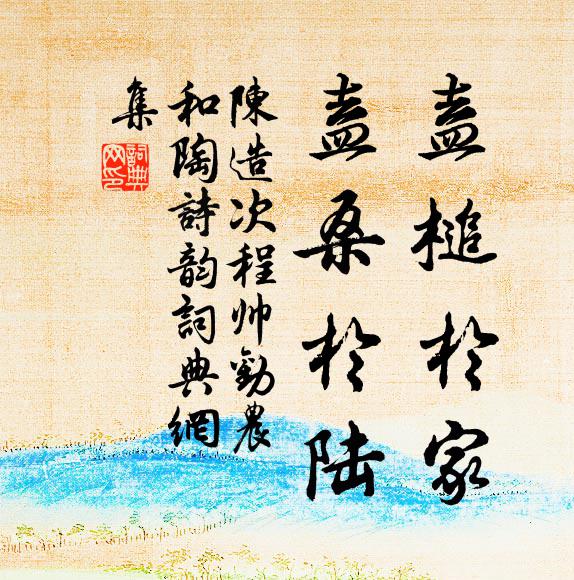 盍槌於家
盍桑於陆
陳造次程帅勸農
和陶詩韵詞典網
集
詞典
网印